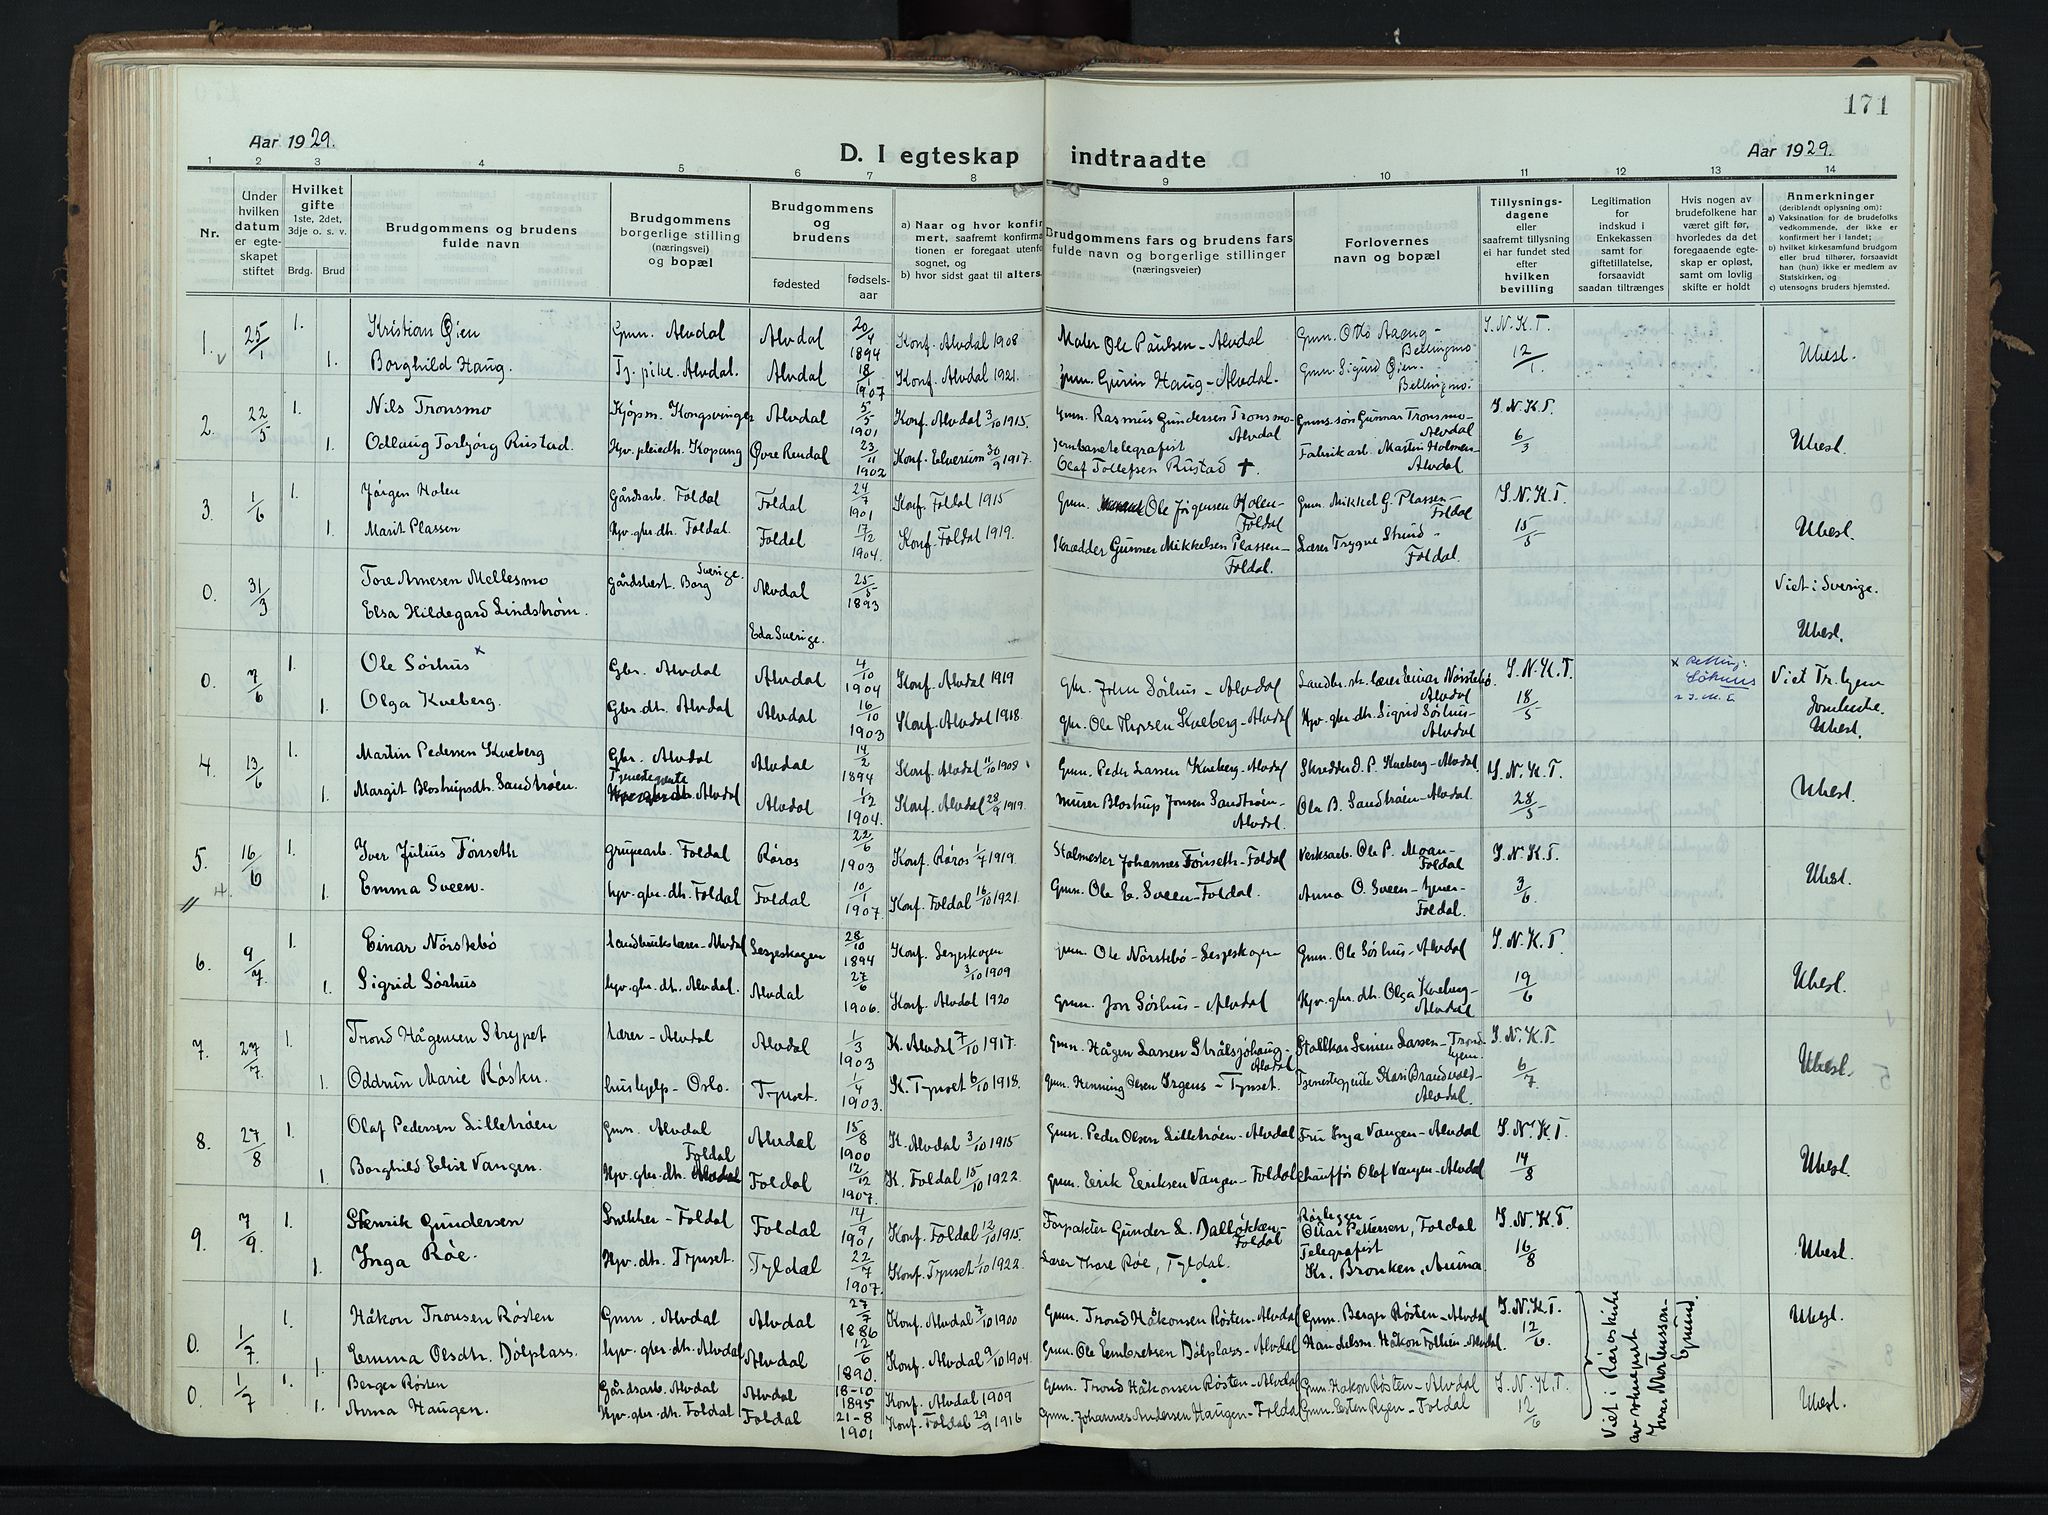 171
Aar 1929.
D. I egteskap indtraadte
Aar 1929.
1 2 3 4 5 6 7 8 9 10 11 12 13 14
Nr.
Under hvilken datum er egteskapet stiftet
Hvilket gifte 1ste, 2det, 3dje o. s. v.
Brdg. Brud
Brudgommens og brudens fulde navn
Brudgommens borgerlige stilling (næringsvei) og bopæl
Brudgommens og brudens
fødested fødselsaar
a) Naar og hvor konfirmert, saafremt konfirmationen er foregaaet utenfor sognet, og
b) hvor sidst gaat til alters
Brudgommens fars og brudens fars fulde navn og borgerlige stillinger (næringsveier)
Forlovernes navn og bopæl
Tillysningsdagene eller saafremt tillysning ei har fundet sted efter hvilken bevilling
Legitimation for indskud i Enkekassen samt for giftetillatelse, forsaavidt saadan tiltrænges
Hvis nogen av brudefolkene har været gift før, hvorledes da det foregaaende egteskap er opløst, samt om lovlig skifte er holdt
Anmerkninger (deriblandt oplysning om):
a) Vaksination for de brudefolks vedkommende, der ikke er konfirmert her i landet;
b) hvilket kirkesamfund brudgom eller brud tilhører, forsaavidt han (hun) ikke er medlem av Statskirken, og
c) utensogns bruders hjemsted.
1. 25/1 1. Kristian Øien Gmn. Alvdal Alvdal 20/4 1894 Konf. Alvdal 1908 Maler Ole Paulsen - Alvdal Gmn. Otto Aaeng - Bellingmo S.N.K.T. 12/1. Ubesl.
1. Borghild Haug. Tj. pike. Alvdal. Alvdal 18/1 1907 Konf. Alvdal 1921. Gmn. Gunn Haug - Alvdal. Gmn. Sigurd Øien. Bellingmo.
2. 22/5 1. Nils Tronsmo Kjøpm. Kongsvinger Alvdal 5/5 1901 Konf. Alvdal 3/10 1915. Gmn. Rasmus Gundersen Tronsmo - Alvdal Gmns. søn Gunnar Tronsmo - Alvdal S.N.K.T. 6/3 Ubesl.
1. Odlaug Torbjørg Rustad. Hjv. pleiedh. Kopang Øvre Rendal 23/11 1902 Konf. Elverum 30/9 1917. Jernbanetelegrafist Olaf Tollefsen Rustad ✝. Fabrikarb. Martin Holmen - Alvdal
3. 1/6 1. Jørgen Holen Gårdsarb. Foldal Foldal 24/7 1901 Konf. Foldal 1915 Gmn. Ole Jørgensen Holen - Foldal Gmn. Mikkel G. Plassen - Foldal S.N.K.T. 15/5 Ubesl.
1. Marit Plassen Hjv. gbr. dh. Foldal. Foldal 17/12 1904. Konf. Foldal 1919. Skrædder Gunner Mikkelsen Plassen - Foldal. Lærer Trygve Strand - Foldal.
0. 31/3 Tore Arnesen Mellesmo Gårdsbest. Borg Sverige. Alvdal 25/5 1893 Viet i Sverige.
Elsa Hildegard Lindstrøm. Eda Sverige. Ubesl.
0. 7/6 1. Ole Sørhus x Gbr. Alvdal Alvdal 4/10 1904 Konf. Alvdal 1919 gbr. John Sørhus - Alvdal Landbr. sk. lærer Einar Nørstebø. Alvdal S.N.K.T. 18/5 Viet Tr. hjem
1. Olga Kveberg. Gbr. dt. Alvdal Alvdal 16/10 1903 Konf. Alvdal 1918. gbr. Ole Thorsen Kveberg - Alvdal Hjv. gbr. dh. Sigrid Sørhus - Alvdal Domkirke. Ubesl.
4. 13/6 1. Martin Pedersen Kveberg Gbr. Alvdal Alvdal 14/2 1894 Konf. Alvdal 11/10 1908 Gmn. Peder Larsen Kveberg - Alvdal Skredder O. P. Kveberg - Alvdal S.N.K.T. 28/5 Ubesl.
1. Margit Blostrupsdt. Sandtrøen. Tjenestejente Alvdal Alvdal 1/12 1904. Konf. Alvdal 28/9 1919. Murer Blostrup Jonsen Sandtrøen - Alvdal. Ola B. Sandtrøen - Alvdal.
5. 16/6 1. Iver Julius Tønseth Grupearb. Foldal Røros 22/6 1903 Konf. Røros 1/7 1919. Stalmester Johannes Tønseth - Foldal Verksarb. Ole P. Moan - Foldal S.N.K.T. 3/6 Ubesl.
1. Emma Sveen. hjv. gbr. dh. Foldal Foldal 10/1 1907. Konf. Foldal 16/10 1921. Gmn. Ole E. Sveen - Foldal. Anna O. Sveen - Foldal.
6. 9/7 1. Einar Nørstebø Landbrukslærer - Alvdal Lesjeskogen 28/10 1894 Konf. Lesjeskogen 3/10 1909 Gmn. Ole Nørstebø - Lesjeskogen Gmn. Ole Sørhus - Alvdal S.N.K.T. 19/6 Ubesl.
1. Sigrid Sørhus hjv. gbr. dt. Alvdal. Alvdal 27/6 1906. Konf. Alvdal 1920 Gmn. Jon Sørhus - Alvdal Hjv. gbr. dh. Olga Kveberg - Alvdal
7. 27/7 1. Trond Hågensen Strypet Lærer - Alvdal Alvdal 1/3 1903 K. Alvdal 7/10 1917. Gmn. Hågen Larsen Strålsjøhaug - Alvdal Larsen - Trondhjem. S.N.K.T. 6/7 Ubesl.
1. Oddrun Marie Røsten hushjelp - Oslo. Tynset. 1/4 1903. K. Tynset 6/10 1918. Gmn. Henning Irgens - Tynset. Tjenestegjente Kari Brandvold - Alvdal.
8. 27/8 1. Olaf Pedersen Lilletrøen Gmn. Alvdal Alvdal 15/8 1900 K. Alvdal 3/10 1915 Gmn. Peder Olsen Lilletrøen - Alvdal Fru Inga Vangen - Alvdal S.N.K.T. 14/8 Ubesl.
1. Borghild Elise Vangen. Hjv. gbr. dh. Foldal Foldal 12/12 1907. K. Foldal 15/10 1922. Gmn. Eirik Eeriksen Vangen - Foldal Chauffør Olaf Vangen - Alvdal
9. 7/9 1. Henrik Gundersen Snekker - Foldal Foldal 14/9 1901 Konf. Foldal 12/10 1915. Forpakter Gunder L. Dalløkken - Foldal Rørlegger Ottar Pettersen, Foldal S.N.K.T. 16/8 Ubesl.
1. Inga Røe. Hjv. dh. Tynset. Tyldal 22/7 1907. Konf. Tynset 1/10 1922. Lærer Thore Røe, Tyldal. Telegrafist Kr. Bronken, Auma
0. 1/7 1. Håkon Tronsen Røsten Gmn. Alvdal Alvdal 27/7 1886 Konf. Alvdal 7/10 1900 Gmn. Trond Håkonsen Røsten - Alvdal Gmn. Berger Røsten - Alvdal S.N.K.T. 12/6. Ubesl.
1. Emma Olsdtr. Dølplass. hjv. gbr. dh. Alvdal Alvdal 12/6 1890. Konf. Alvdal 9/10 1904. Gmn. Ole Dølplass - Alvdal Handelsm. Håkon - Alvdal.
0. 1/7 1. Berger Røsten Gårdsarb. Alvdal Alvdal 18-10 1895 Konf. Alvdal 1909 Gmn. Trond Håkonsen Røsten - Alvdal Gmn. Håkon Røsten - Alvdal S.N.K.T. 12/6 Ubesl.
1. Anna Haugen. Hjv. gbr. dh. Foldal Foldal 21-8 1901 Konf. Foldal 29/9 1916 Gmn. Johannes Andersen Haugen - Foldal Gmn. Esten Ryen - Foldal
Viet i Røroskirke av sogneprest Ivar Mortensson-Egnund.